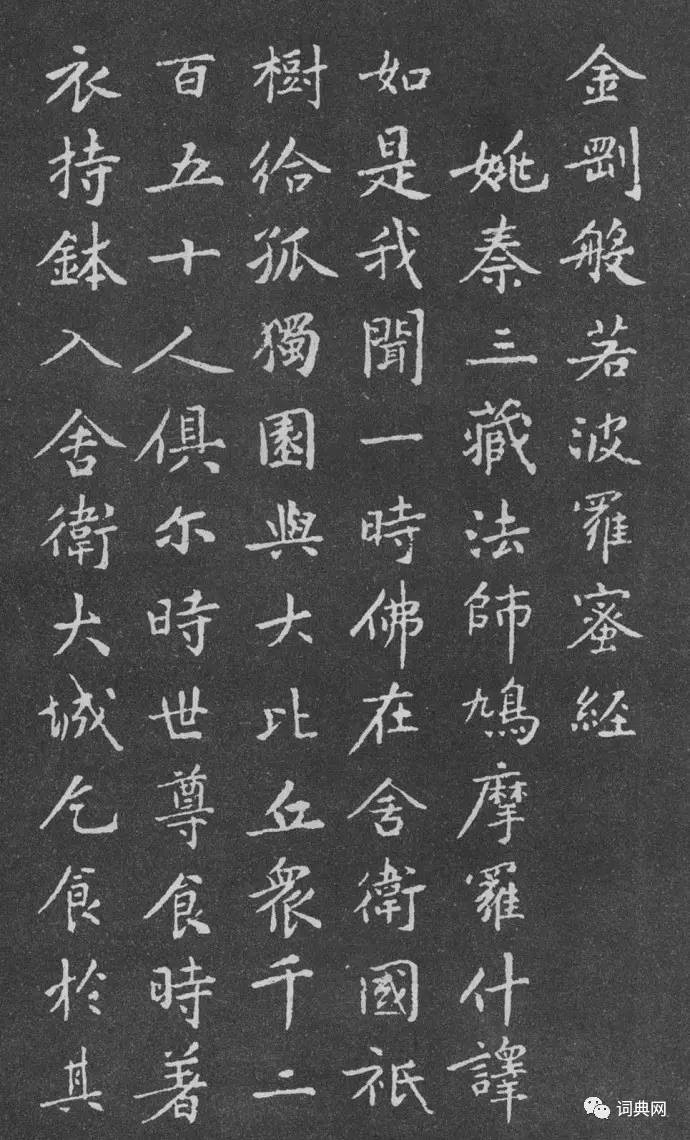 金剛般若波羅蜜經
姚秦三藏法師鳩摩羅什譯
如是我聞一時佛在舍衛國祇
樹給孤獨園與大比丘衆千二
百五十人俱尒時世尊食時著
衣持鉢入舍衛大城乞食於其
词典网